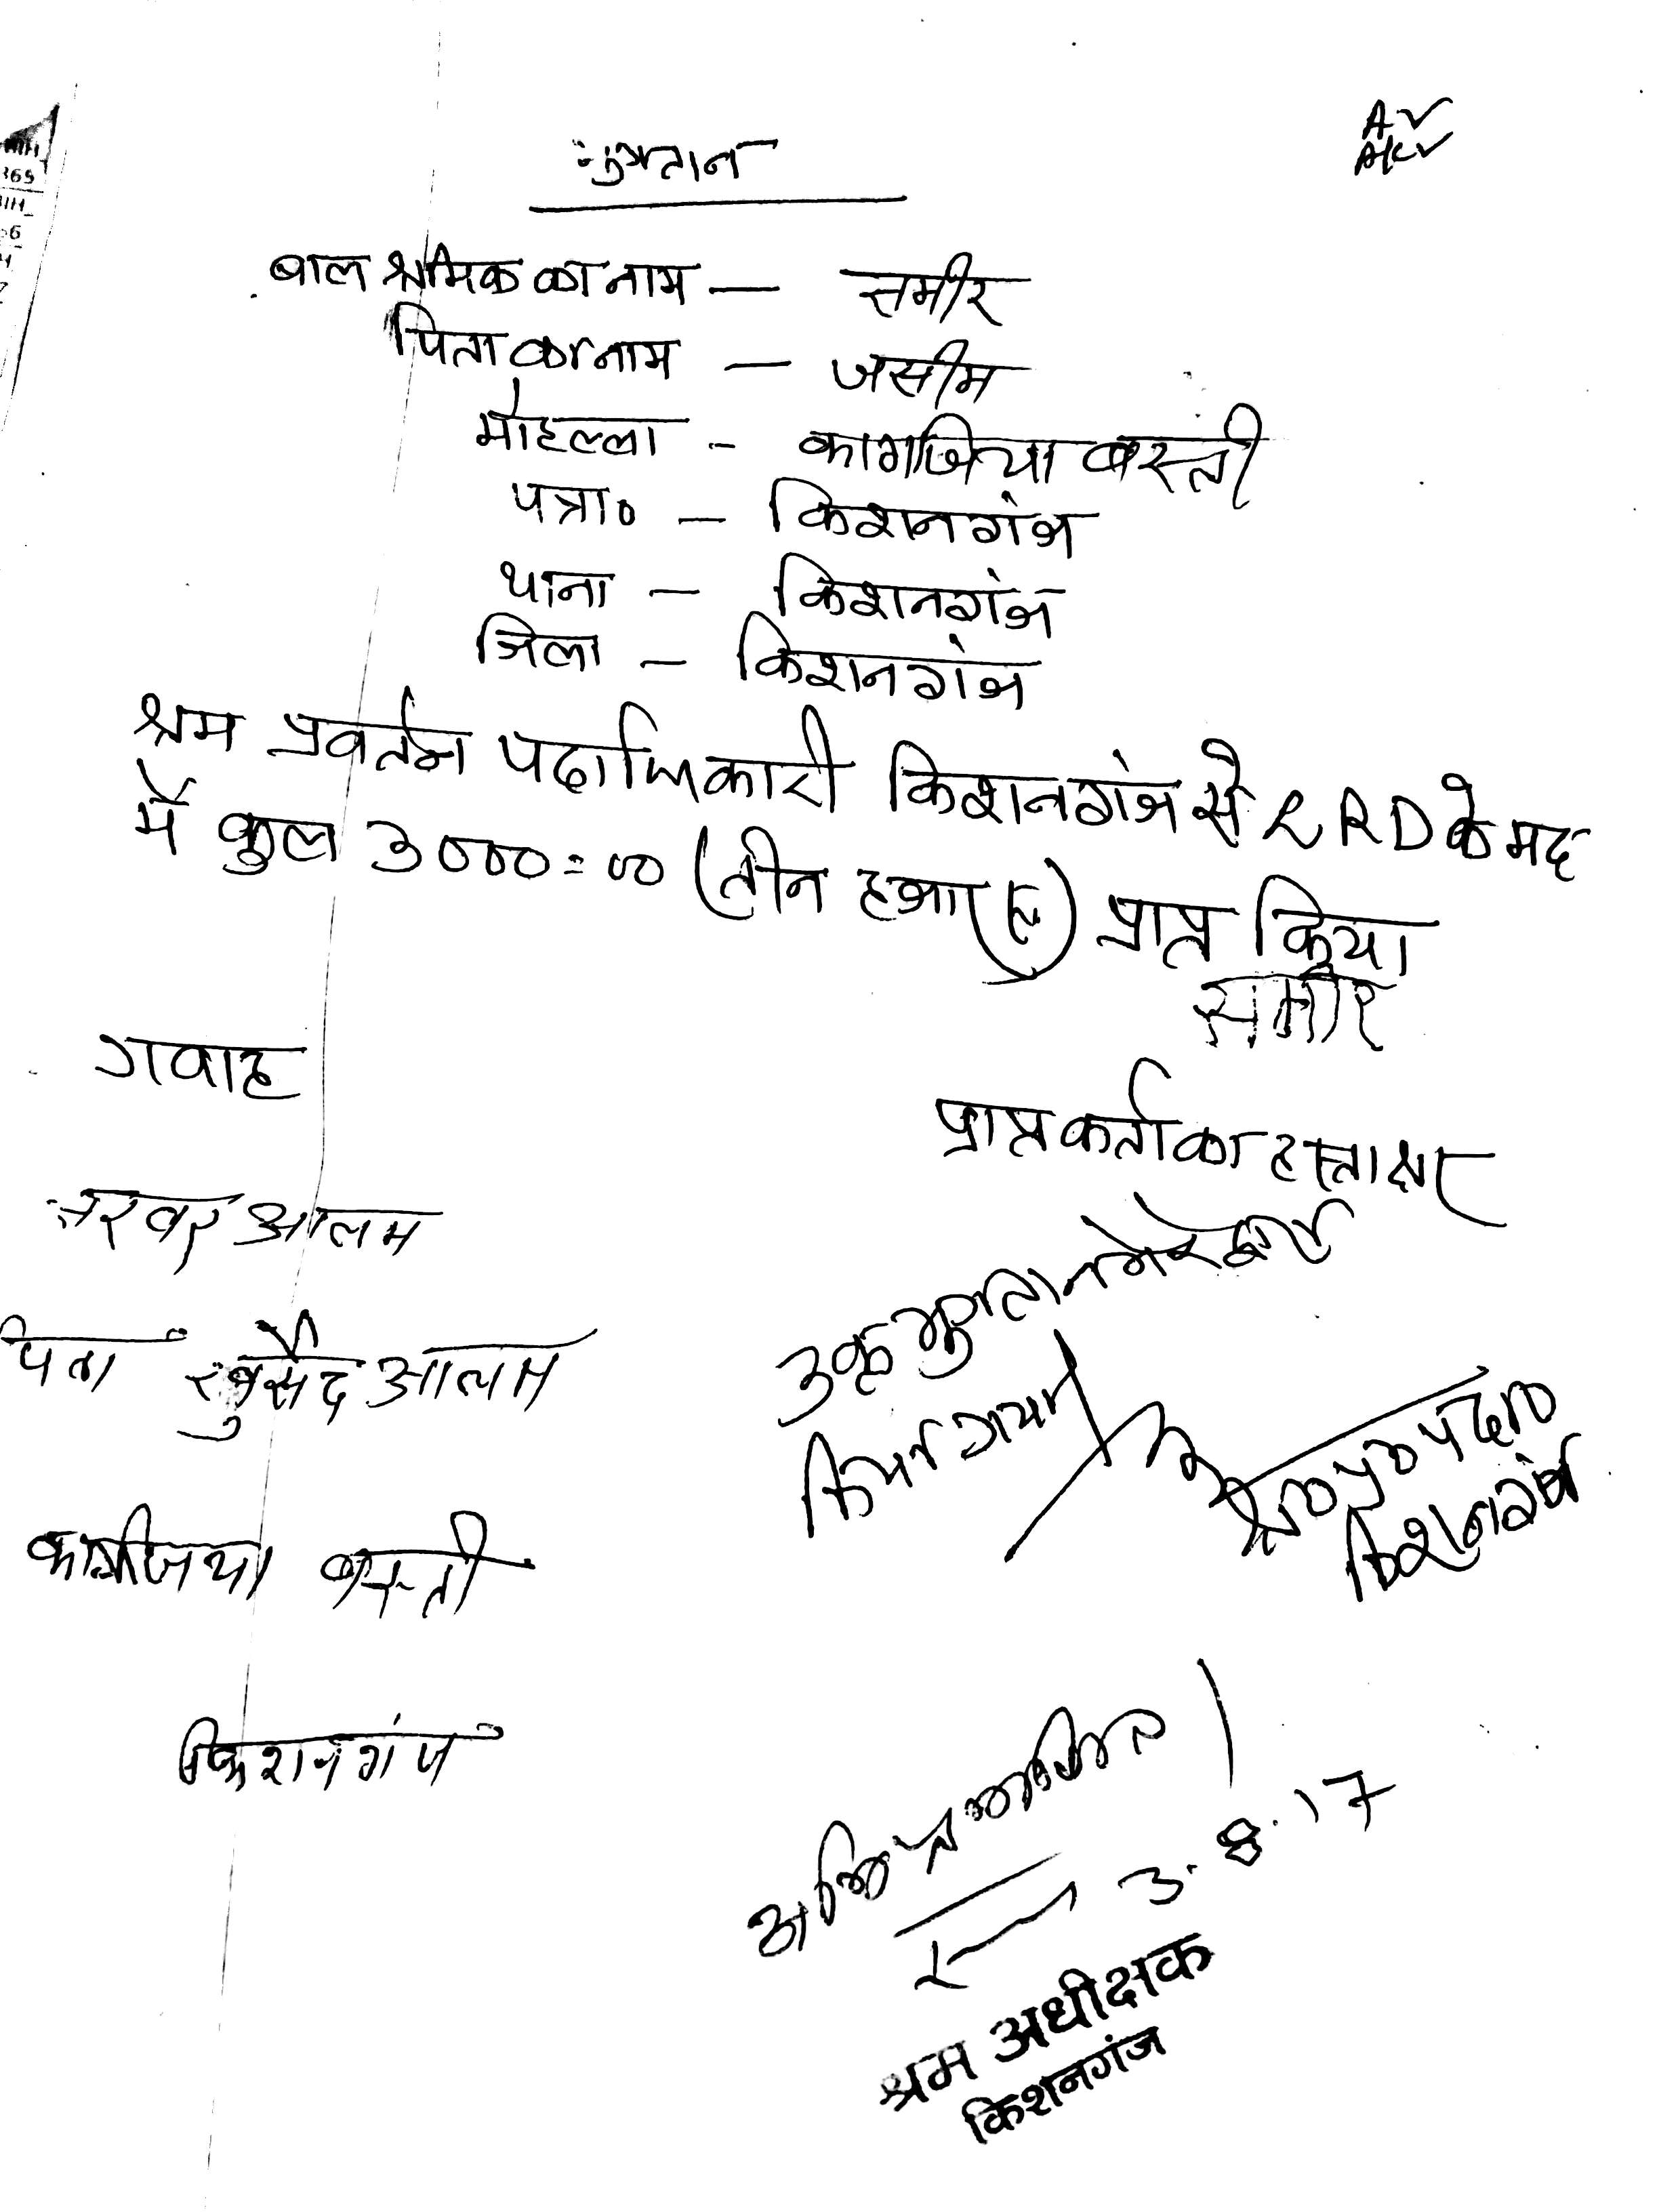 भुगतान
बाल श्रमिक का नाम — समीर
पिता का नाम — जसीम
मोहल्ला - कागजिया बस्ती
पत्रा० — किशनगंज
थाना — किशनगंज
जिला — किशनगंज
श्रम प्रवर्तन पदाधिकारी किशनगंज से RRD के मद
में कुल 3000=00 (तीन हजार रू) प्राप्त किया
समीर
गवाह
प्राप्त कर्ता का हस्ताक्षर
सरवर आलम
पिता खुर्सैद आलम
कागजिया बस्ती
किशनगंज
उक्त भुगतान मेरे द्वारा
किया गया
श्र० प्र० पदा०
किशनगंज
अभिप्रमाणित
3.8.17
श्रम अधीक्षक
किशनगंज